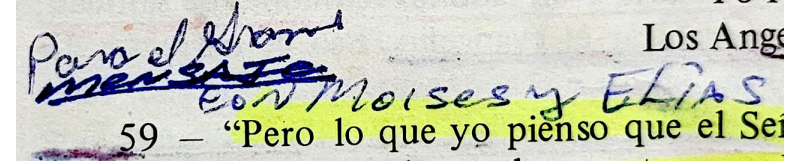 Los Ange
Para el
MENSAJE
CON MOISES y ELÍAS
59 – “Pero lo que yo pienso que el Señ